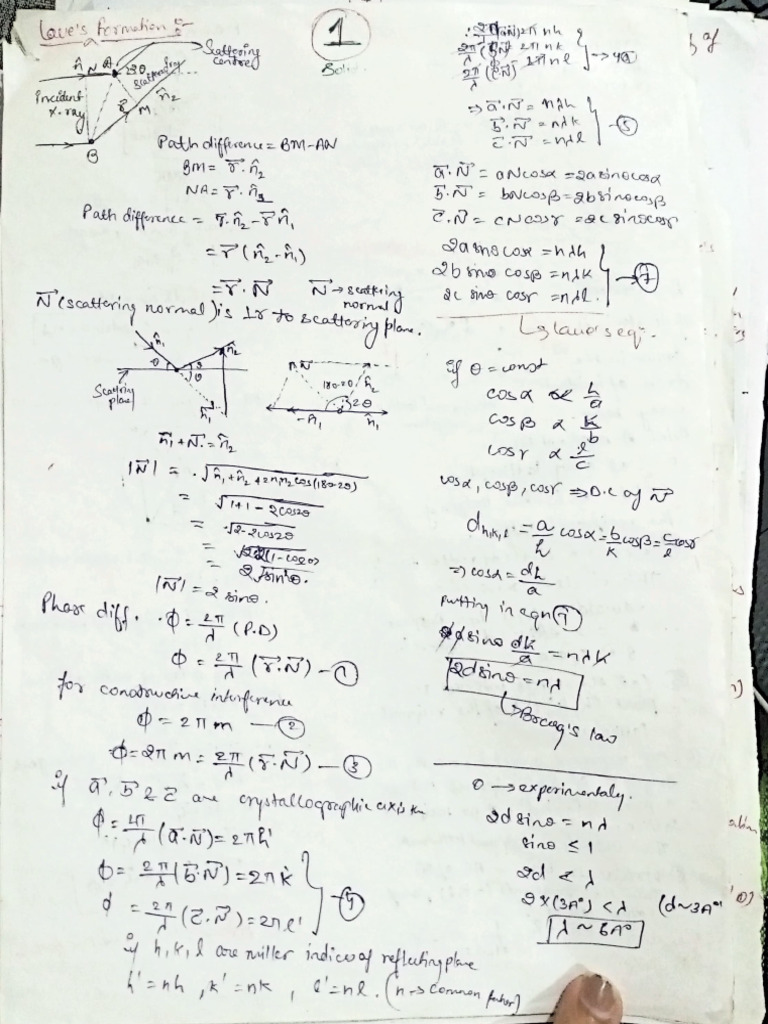 Laue's Formation :-
1
Soln.
Scattering centre
n̂₁ N A 2θ
Scattered
n̂₂
Incident X-ray
r⃗ M
B
Path difference = BM-AN
BM = r⃗.n̂₂
NA = r⃗.n̂₁
Path difference = r⃗.n̂₂ - r⃗ n̂₁
= r⃗ (n̂₂ - n̂₁)
= r⃗ . N⃗ N⃗ → scattering normal
N⃗ (scattering normal) is ⊥r to scattering plane.
n̂₁ n̂₂
θ θ θ
Scattering plane
n̂₁
180-2θ n̂₂
2θ
-n̂₁ n̂₁
n̂₁ + N⃗ = n̂₂
|N⃗| = √n̂₁ + n̂₂ + 2n₁n₂ cos(180-2θ)
= √1+1-2cos2θ
= √2-2cos2θ
= √2(1-cos2θ)
= 2√sin²θ.
|N⃗| = 2 sinθ.
Phase diff. ϕ = 2π/λ (P.D)
ϕ = 2π/λ (r⃗.N⃗) — ①
for constructive interference
ϕ = 2πm — ②
ϕ = 2πm = 2π/λ (r⃗.N⃗) — ③
if a⃗, b⃗ & c⃗ are crystallographic axis
ϕ = 2π/λ (a⃗.N⃗) = 2πh'
ϕ = 2π/λ (b⃗.N⃗) = 2πk'
ϕ = 2π/λ (c⃗.N⃗) = 2πl'
④
if h, k, l are miller indices of reflecting plane
h' = nh , k' = nk , l' = nl. (n → common factor)
2π nh
2π/λ (b⃗.N⃗) 2π nk
2π/λ (c⃗.N⃗) 2π nl
⇒ a⃗.N⃗ = nλh
b⃗.N⃗ = nλk
c⃗.N⃗ = nλl
⑤
a⃗.N⃗ = aN cosα = 2a sinθ cosα
b⃗.N⃗ = bN cosβ = 2b sinθ cosβ
c⃗.N⃗ = cN cosr = 2c sinθ cosr
2a sinθ cosα = nλh
2b sinθ cosβ = nλk
2c sinθ cosr = nλl.
→ ⑦
↳ Laue's eqn.
if θ = const
cosα ∝ h/a
cosβ ∝ k/b
cosr ∝ l/c
cosα, cosβ, cosr ⇒ D.C of N⃗
d h,k,l = a/h cosα = b/k cosβ = c/l cosr
⇒ cosα = dh/a
putting in eqn ⑦
sinθ dk/a = nλk
2d sinθ = nλ
↳ Bragg's law
θ → experimentaly.
2d sinθ = nλ
sinθ ≤ 1
2d < λ
2×(3A°) < λ (d ~ 3A°)
λ ~ 6A°